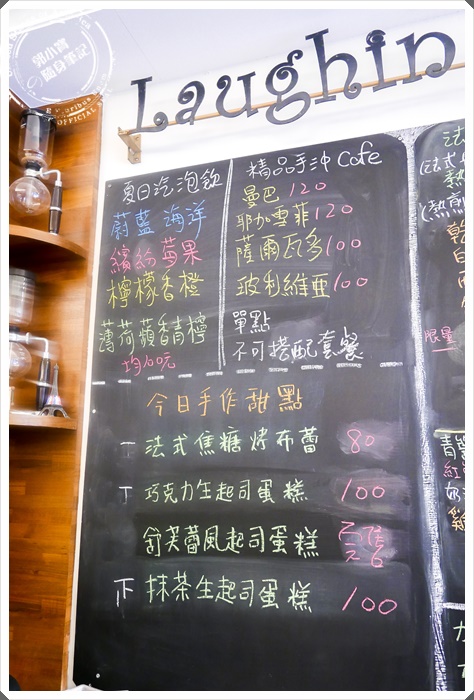 郭小寶
の隨身筆記
OFFICIAL
Laughin
夏日汽泡飲
蔚藍海洋
繽紛莓果
檸檬香橙
薄荷蘋香青檸
精品手沖 Cafe
曼巴 120
耶加雪菲 120
薩爾瓦多 100
玻利維亞 100
單點
不可搭配套餐
今日手作甜點
法式焦糖烤布蕾 80
巧克力生起司蛋糕 100
舒芙蕾風起司蛋糕
抹茶生起司蛋糕 100
法
(法式
熱
(熱煎
乾
白
限量
青醬
紅
奶
雞